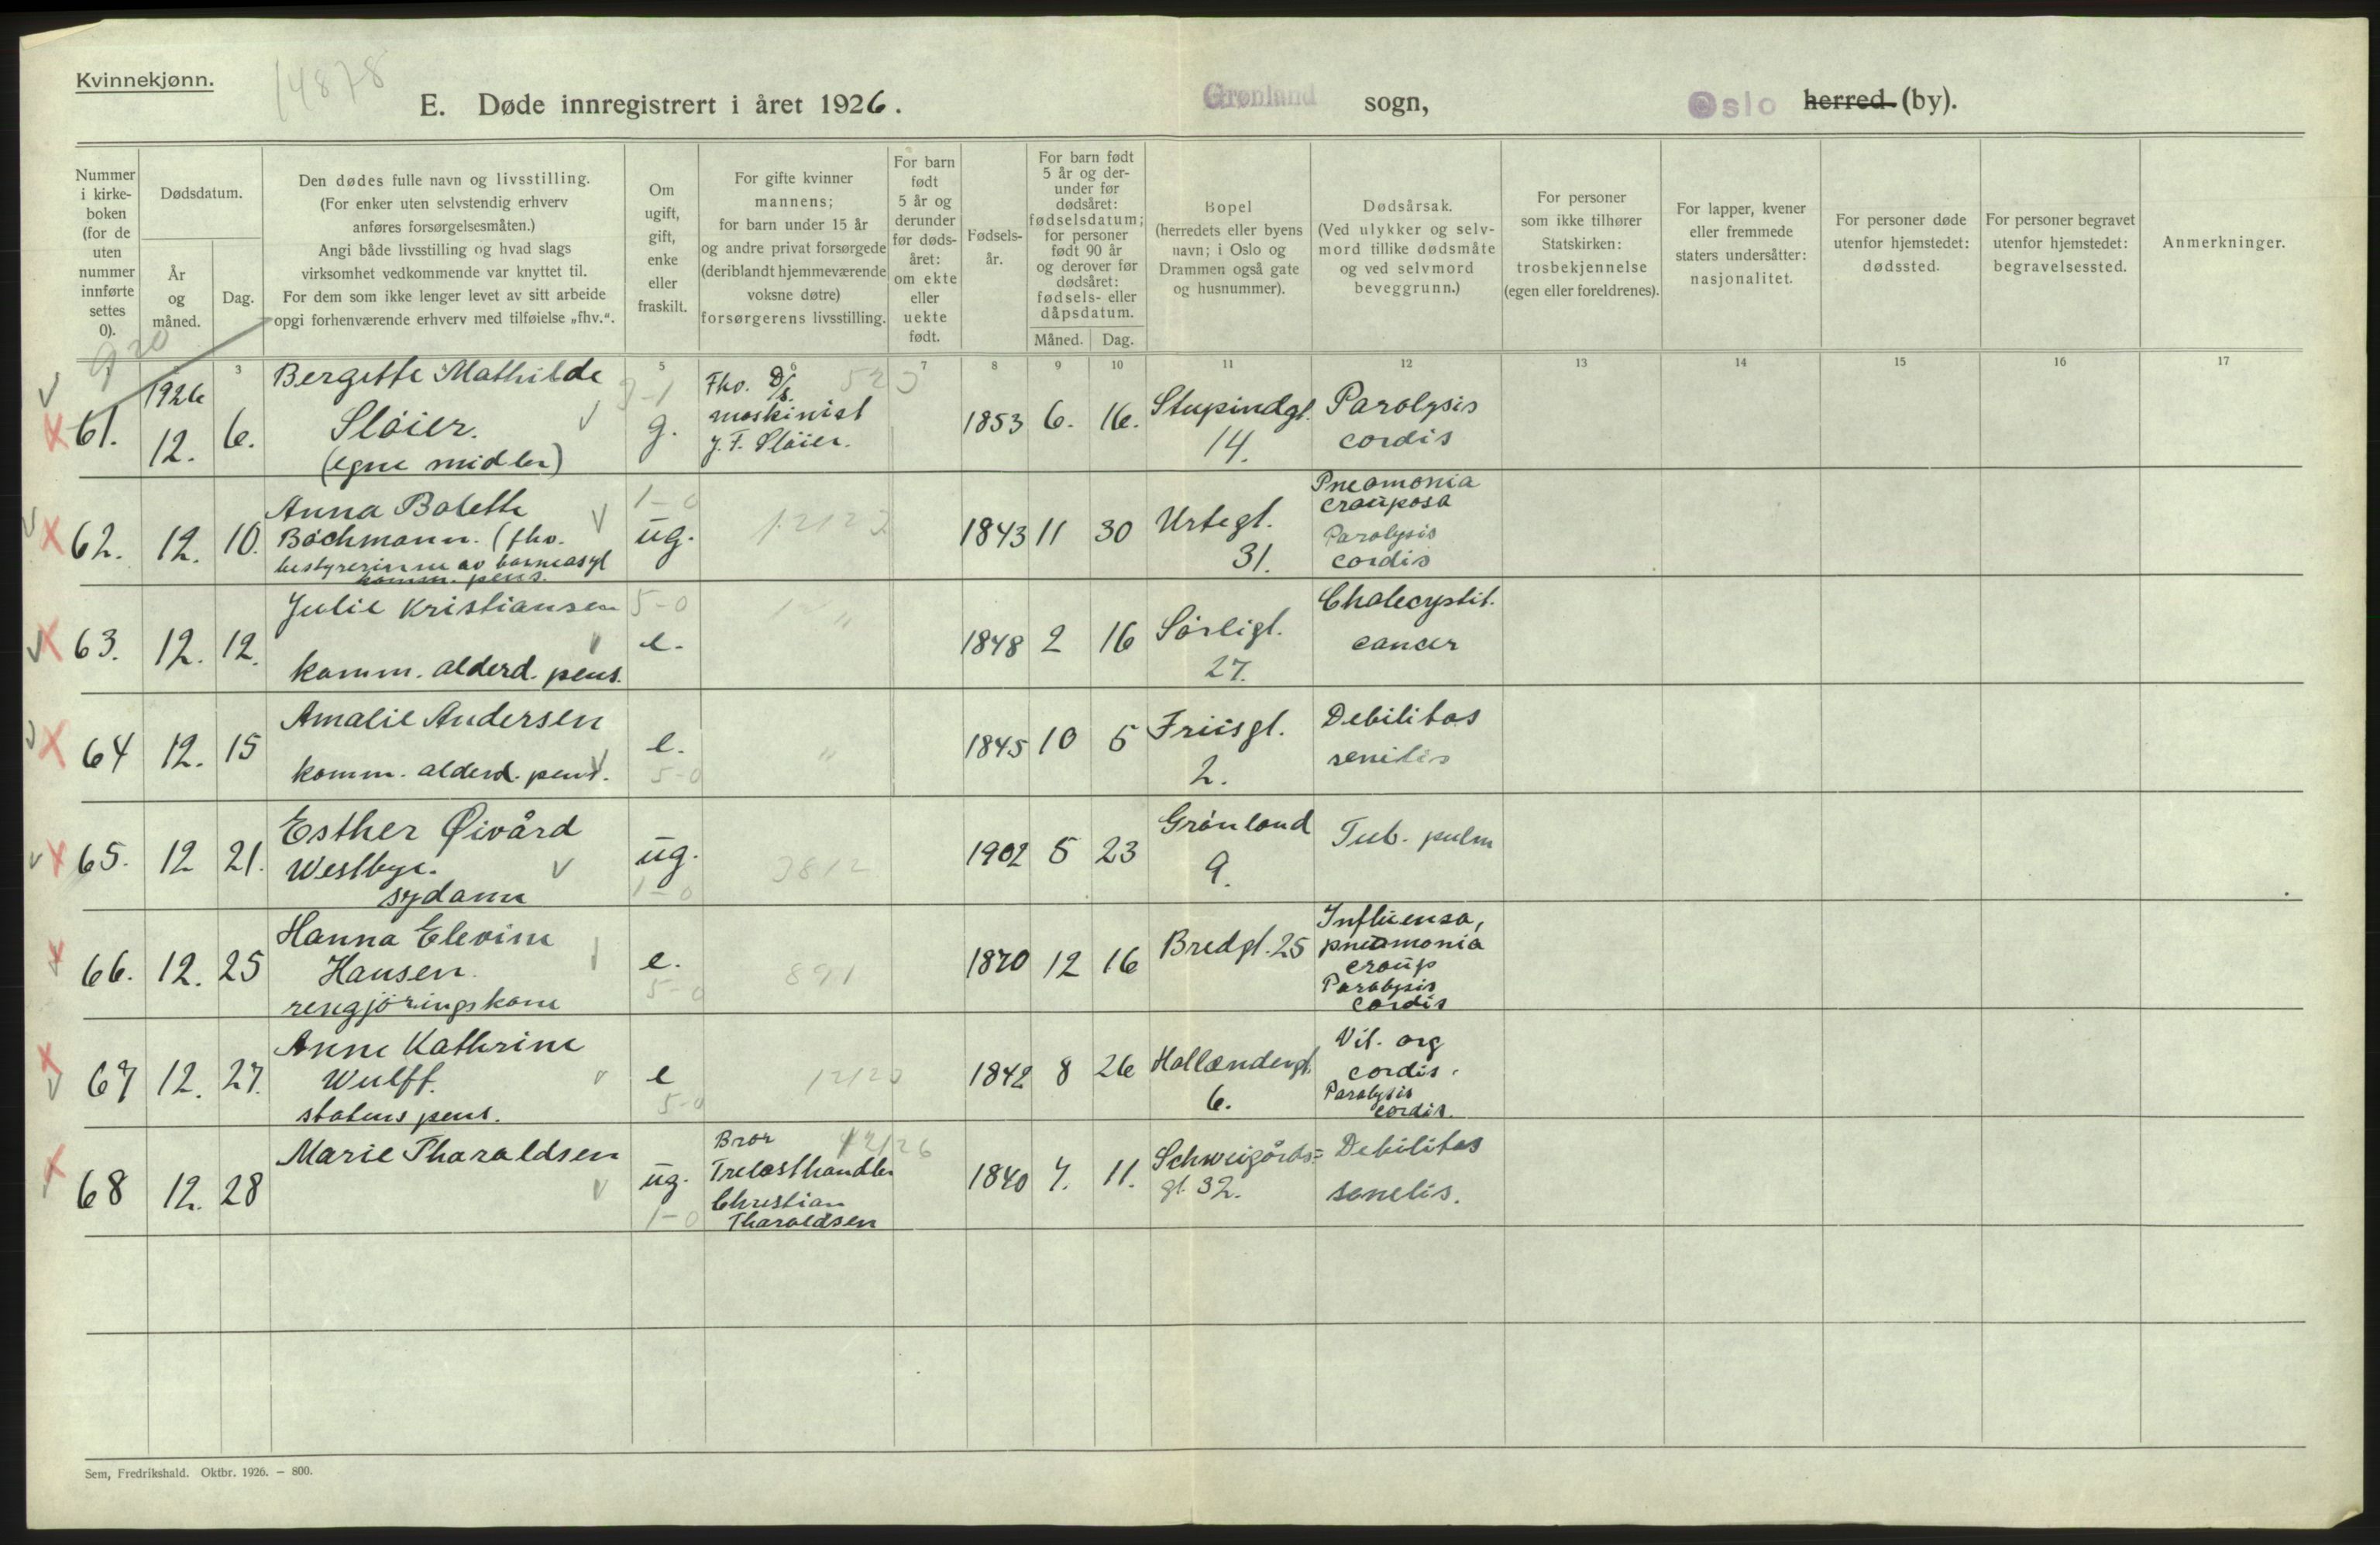 Kvinnekjønn.
14878
E. Døde innregistrert i året 1926.
Grønland sogn,
Oslo herred (by).
Nummer i kirke-boken (for de uten nummer innførte settes 0).
Dødsdatum.
År og måned.
Dag.
Den dødes fulle navn og livsstilling.
(For enker uten selvstendig erhverv
anføres forsørgelsesmåten.)
Angi både livsstilling og hvad slags
virksomhet vedkommende var knyttet til.
For dem som ikke lenger levet av sitt arbeide
opgi forhenværende erhverv med tilføielse „fhv.“.
Om ugift, gift, enke eller fraskilt.
For gifte kvinner
mannens;
for barn under 15 år
og andre privat forsørgede
(deriblandt hjemmeværende
voksne døtre)
forsørgerens livsstilling.
For barn født 5 år og derunder før dødsåret: om ekte eller uekte født.
Fødsels-år.
For barn født 5 år og der-under før dødsåret: fødselsdatum; for personer født 90 år og derover før dødsåret: fødsels- eller dåpsdatum.
Måned. Dag.
Bopel
(herredets eller byens
navn; i Oslo og
Drammen også gate
og husnummer).
Dødsårsak.
(Ved ulykker og selv-
mord tillike dødsmåte
og ved selvmord
beveggrunn.)
For personer
som ikke tilhører
Statskirken:
trosbekjennelse
(egen eller foreldrenes).
For lapper, kvener
eller fremmede
staters undersåtter:
nasjonalitet.
For personer døde
utenfor hjemstedet:
dødssted.
For personer begravet
utenfor hjemstedet:
begravelsessted.
Anmerkninger.
3 5 6 7 8 9 10 11 12 13 14 15 16 17
61. 1926 12. 6. Bergitte Mathilde Sløier. (egne midler) g. Fhv. D/s. maskinist J. F. Sløier. 1853 6. 16. Stupindgt. 14. Paralysis cordis
62. 12. 10. Anna Bolette Bachmann. (fhv. bestyrerinne av barneasyl komm. pens. ug. 1843 11 30 Urtegt. 31. Pneomonia crouposa Paralysis cordis
63. 12. 12. Julie Kristiansen komm. alderd. pens. e. 1848 2 16 Sørligt. 27. Cholecystit. cancer
64 12. 15 Amalie Andersen komm. alderd. pens. e. 1845 10 5 Friisgt. 2. Debilitas senilis
65. 12 21. Esther Øivård Westbye. sydame ug. 3812 1902 5 23 Grønland 9. Tub. pulm
66. 12. 25 Hanna Elevine Hansen. rengjøringskone e. 891 1870 12 16 Bredgt. 25 Influensa, pneumonia croup Paralysis cordis
67 12. 27. Anne Kathrine Wulff. statens pens. e 1842 8 26 Hollændergt. 6. Vit. org cordis. Paralysis cordis.
68 12. 28 Marie Tharaldsen ug. Bror Trelasthandler Christian Tharaldsen 1840 7. 11. Schweigårds= gt. 32. Debilitas senelis.
Sem, Fredrikshald. Oktbr. 1926. – 800.